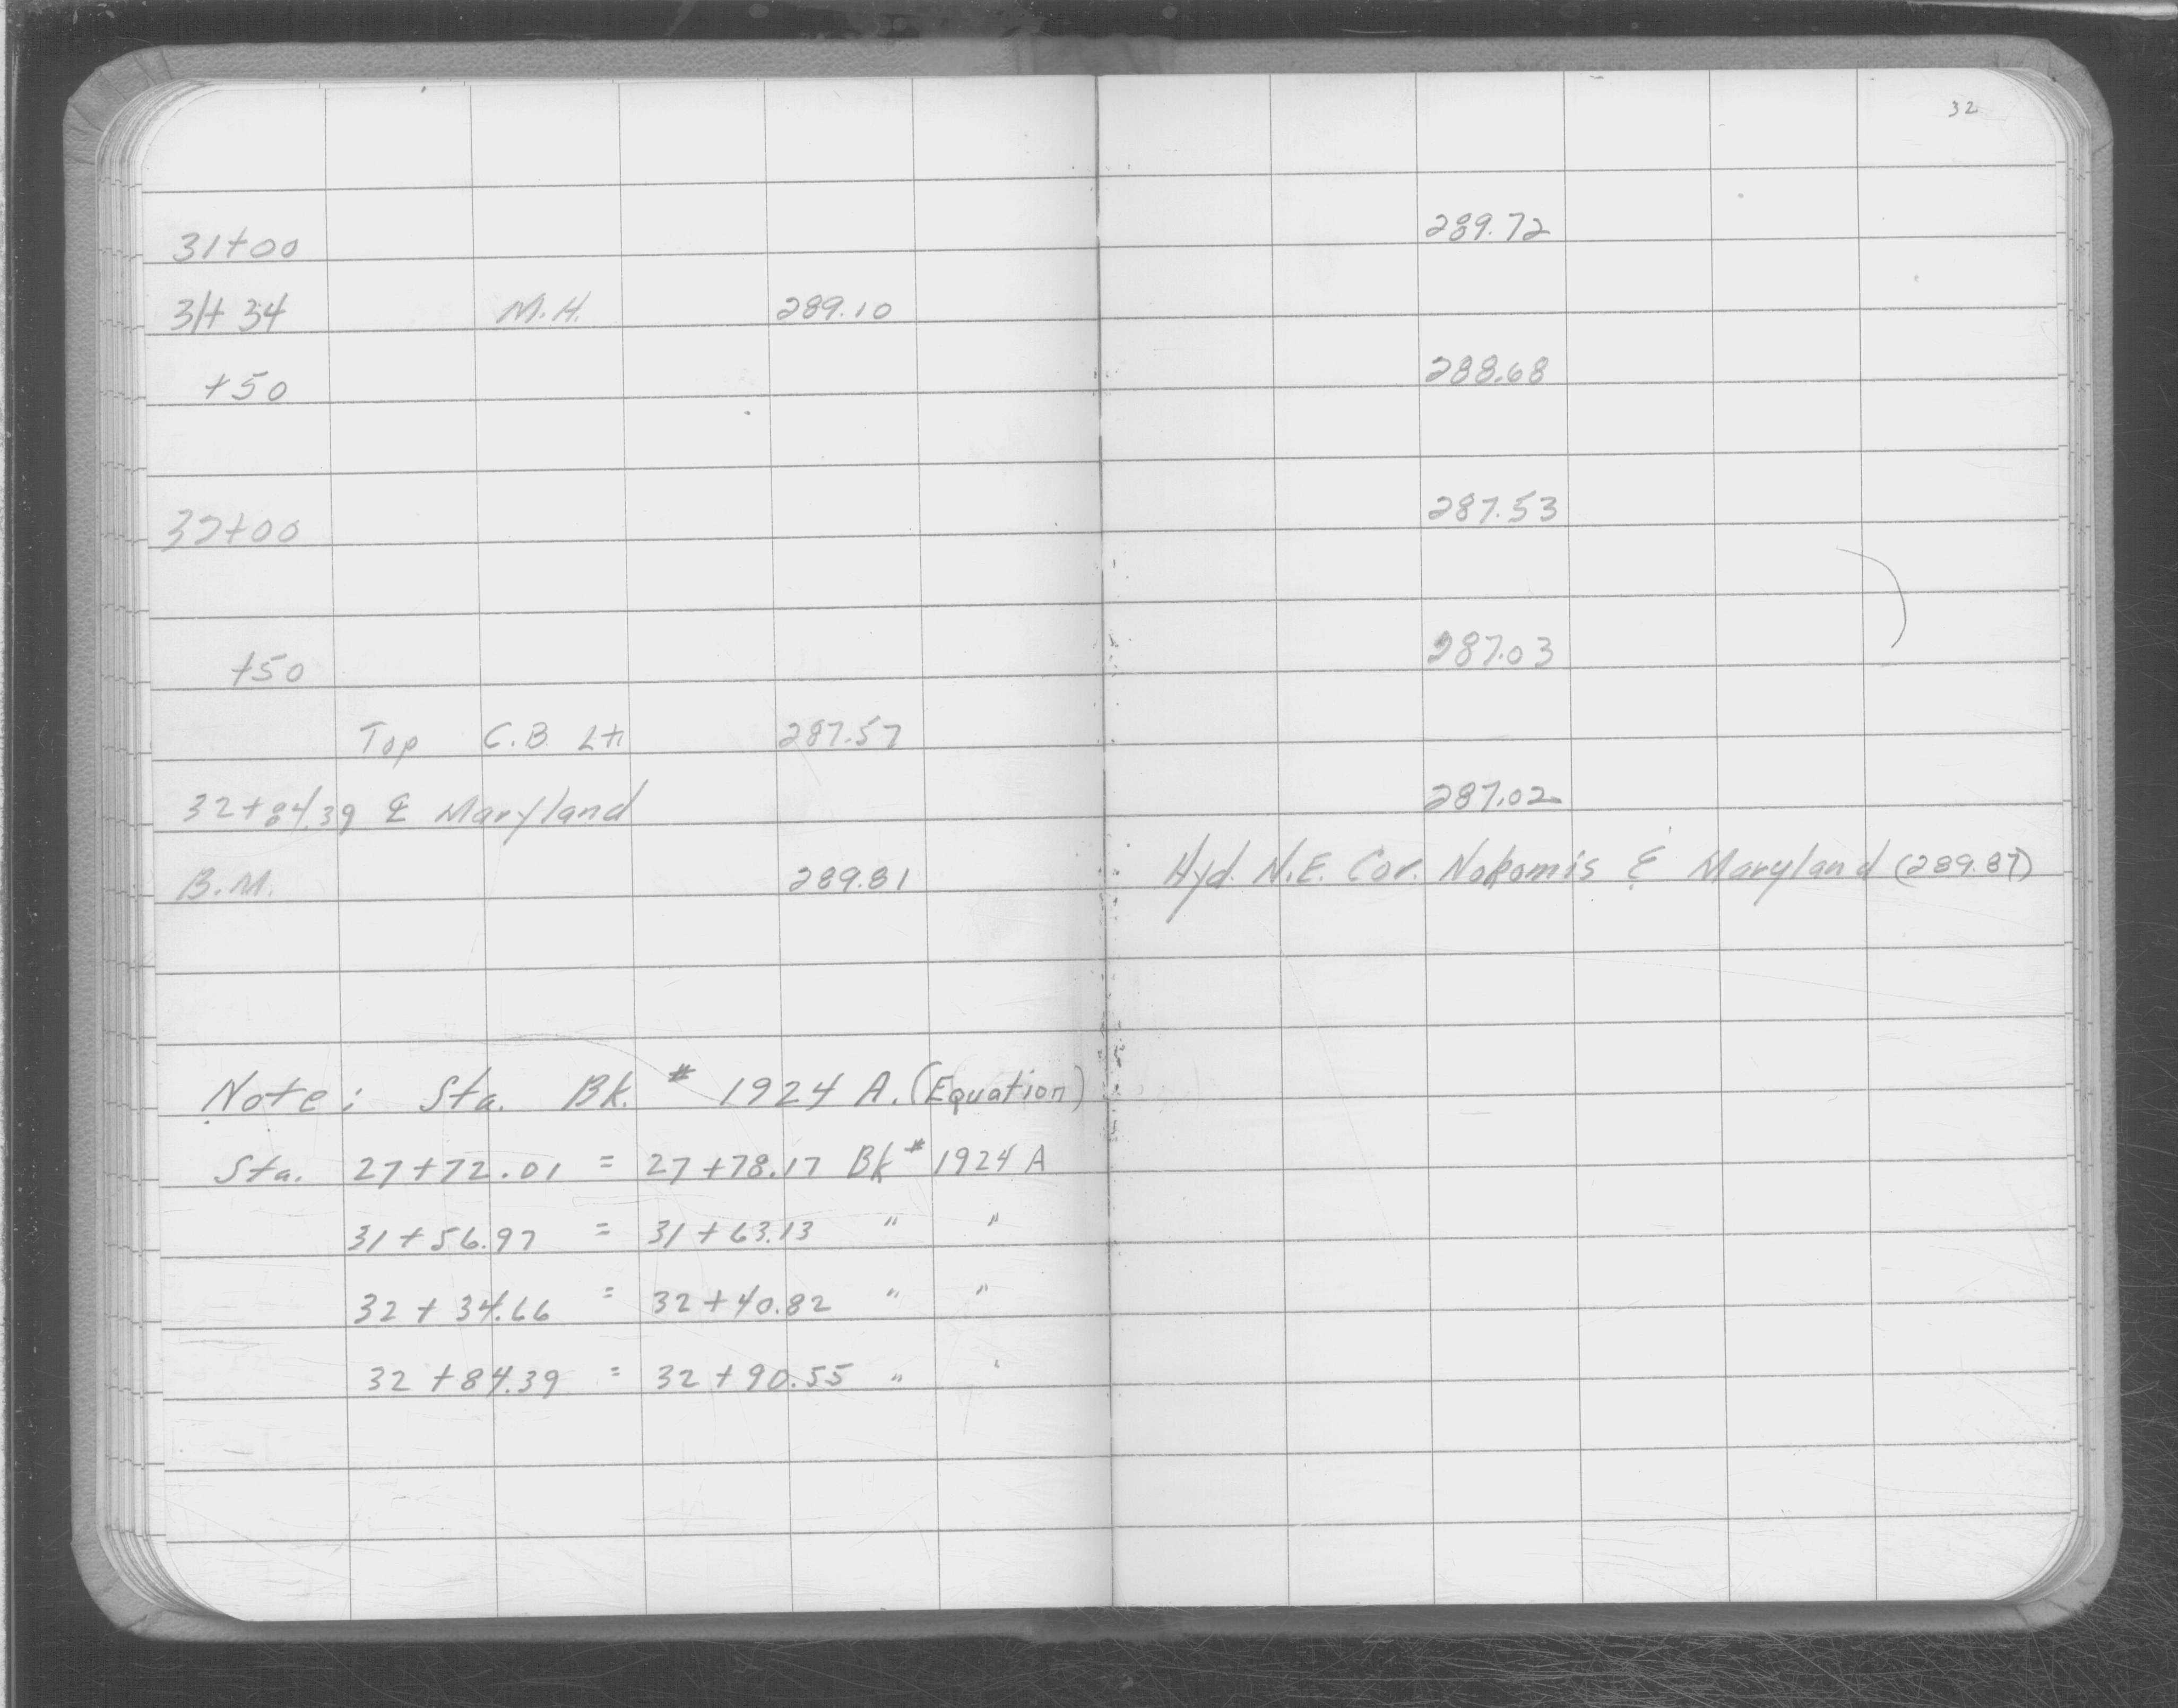 32
31+00 289.72
31+34 M.H. 289.10
+50 288.68
32+00 287.53
+50 287.03
Top C.B. Lt. 287.57
32+84.39 ℄ Maryland 287.02
B.M. 289.81 Hyd. N.E. Cor. Nokomis & Maryland (289.87)
Note: Sta. Bk. # 1924 A. (Equation)
Sta. 27+72.01 = 27+78.17 Bk # 1924 A
31+56.97 = 31+63.13 " "
32+34.66 = 32+40.82 " "
32+84.39 = 32+90.55 " "